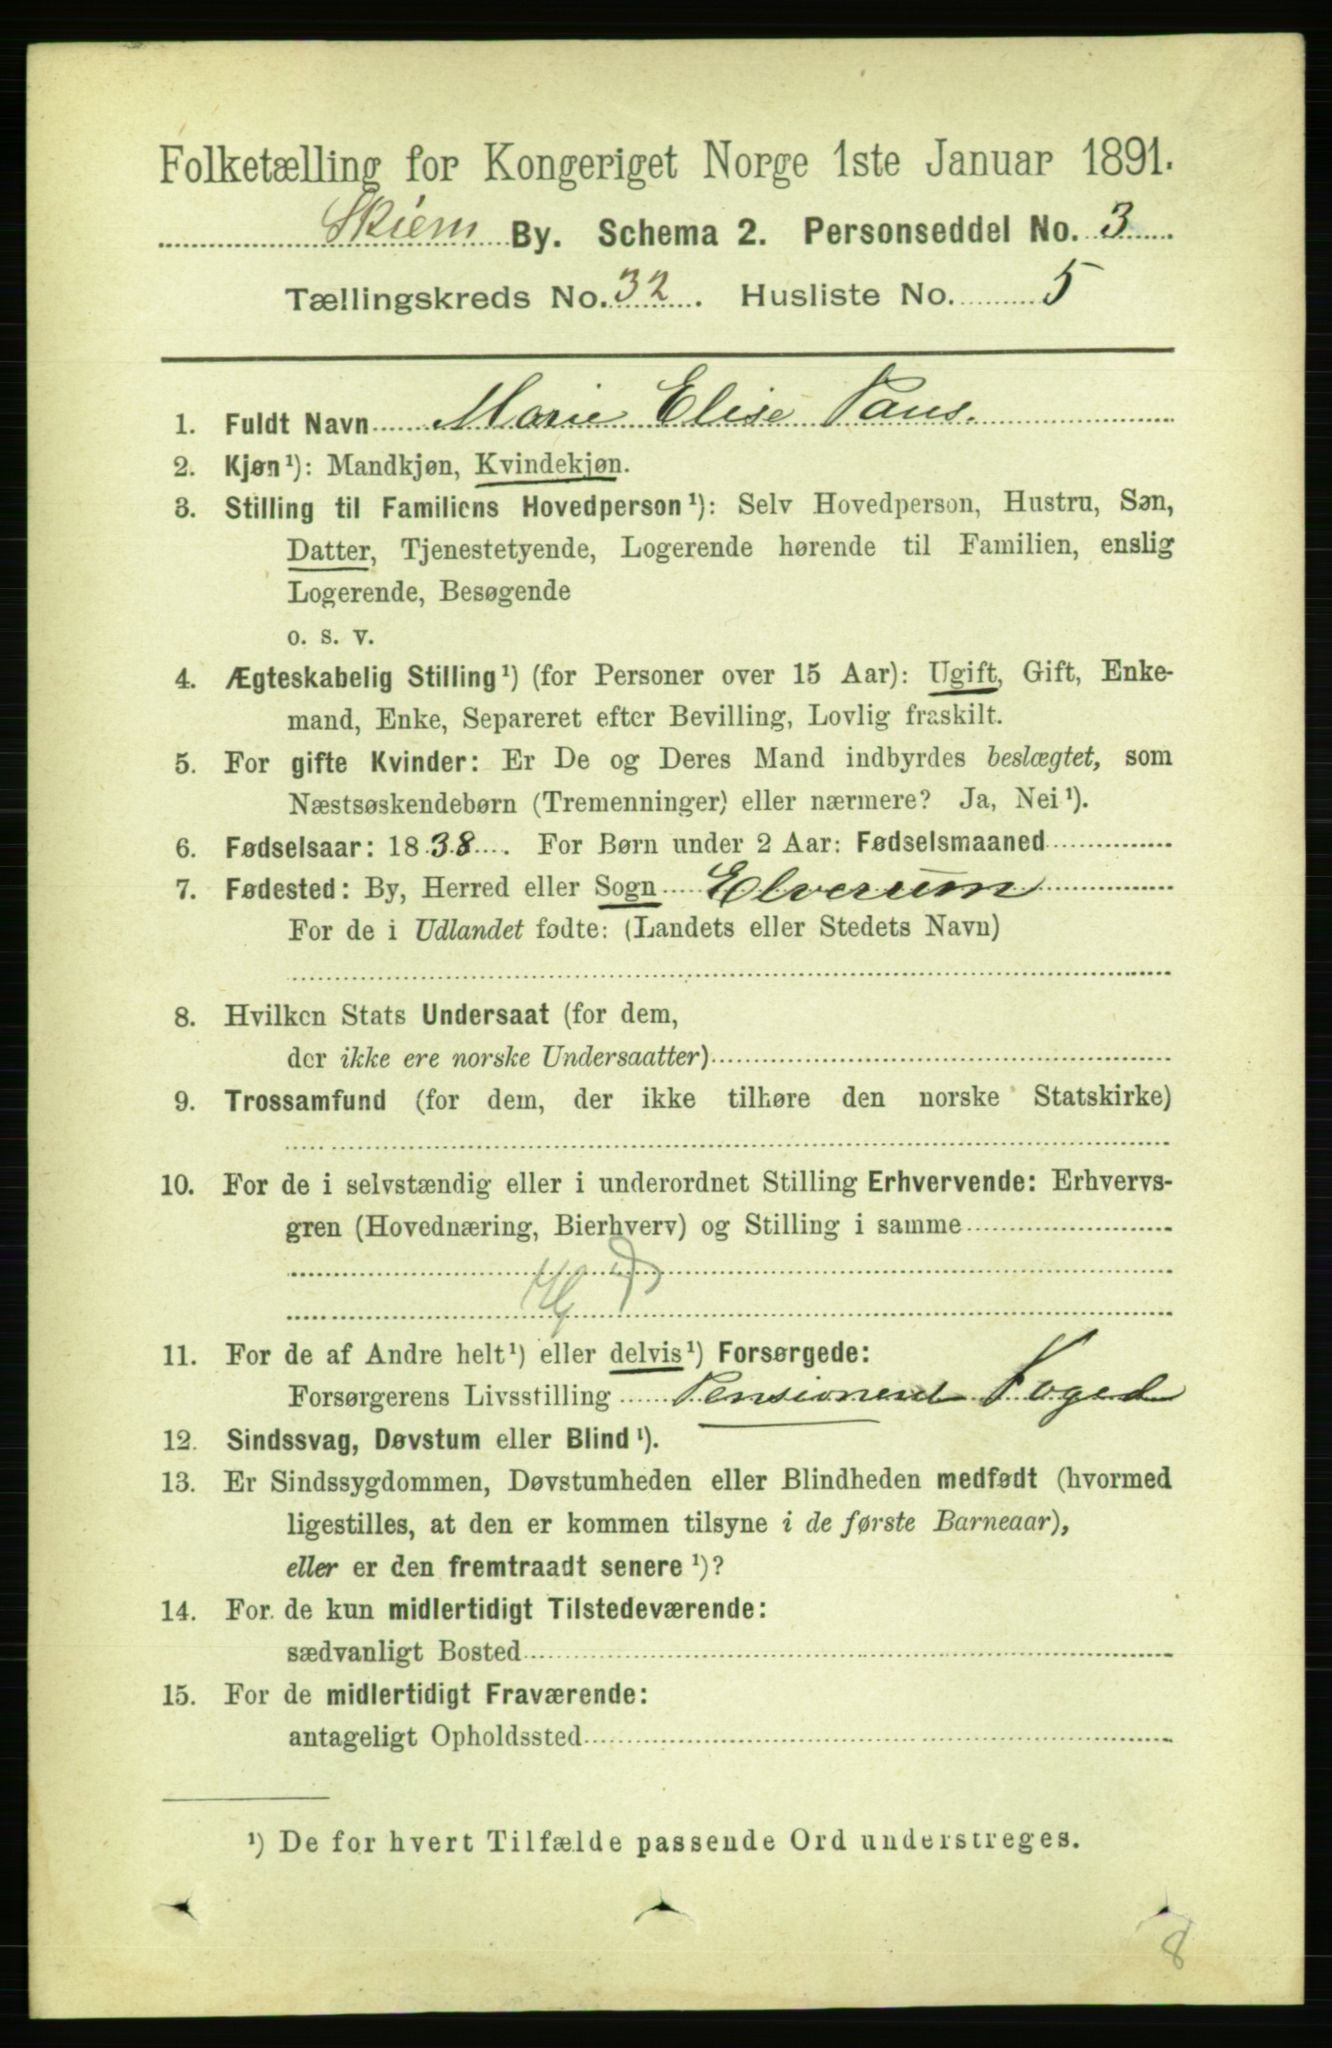 Folketælling for Kongeriget Norge 1ste Januar 1891.
Skiens By. Schema 2. Personseddel No. 3
Tællingskreds No. 32. Husliste No. 5
1. Fuldt Navn Marie Elise Paus.
2. Kjøn¹): Mandkjøn, Kvindekjøn.
3. Stilling til Familiens Hovedperson¹): Selv Hovedperson, Hustru, Søn,
Datter, Tjenestetyende, Logerende hørende til Familien, enslig
Logerende, Besøgende
o. s. v.
4. Ægteskabelig Stilling¹) (for Personer over 15 Aar): Ugift, Gift, Enke-
mand, Enke, Separeret efter Bevilling, Lovlig fraskilt.
5. For gifte Kvinder: Er De og Deres Mand indbyrdes beslægtet, som
Næstsøskendebørn (Tremenninger) eller nærmere? Ja, Nei¹).
6. Fødselsaar: 1838. For Børn under 2 Aar: Fødselsmaaned
7. Fødested: By, Herred eller Sogn Elverum
For de i Udlandet fødte: (Landets eller Stedets Navn)
8. Hvilken Stats Undersaat (for dem,
der ikke ere norske Undersaatter)
9. Trossamfund (for dem, der ikke tilhøre den norske Statskirke)
10. For de i selvstændig eller i underordnet Stilling Erhvervende: Erhvervs-
gren (Hovednæring, Bierhverv) og Stilling i samme
11. For de af Andre helt¹) eller delvis¹) Forsørgede:
Forsørgerens Livsstilling Pensioneret Foged
12. Sindssvag, Døvstum eller Blind¹).
13. Er Sindssygdommen, Døvstumheden eller Blindheden medfødt (hvormed
ligestilles, at den er kommen tilsyne i de første Barneaar),
eller er den fremtraadt senere¹)?
14. For de kun midlertidigt Tilstedeværende:
sædvanligt Bosted
15. For de midlertidigt Fraværende:
antageligt Opholdssted
¹) De for hvert Tilfælde passende Ord understreges.
8